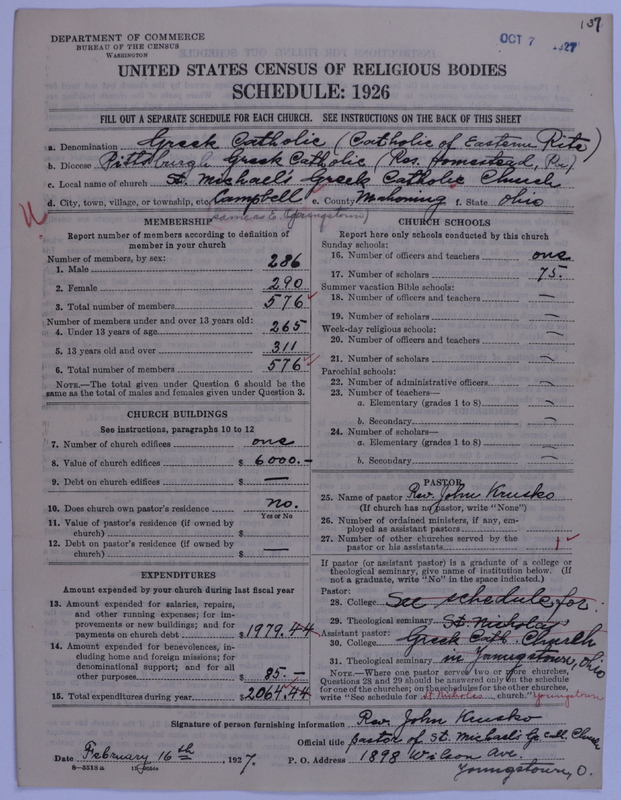 137.
DEPARTMENT OF COMMERCE
BUREAU OF THE CENSUS
WASHINGTON
OCT 7 1927
UNITED STATES CENSUS OF RELIGIOUS BODIES
SCHEDULE: 1926
FILL OUT A SEPARATE SCHEDULE FOR EACH CHURCH. SEE INSTRUCTIONS ON THE BACK OF THIS SHEET
a. Denomination Greek Catholic (Catholic of Eastern Rite)
b. Diocese Pittsburgh Greek Catholic (Res. Homestead, Pa)
c. Local name of church St. Michael's Greek Catholic Church
d. City, town, village, or township, etc. Campbell e. County Mahoning f. State Ohio
(same as E. Youngstown)
MEMBERSHIP
Report number of members according to definition of member in your church
Number of members, by sex:
1. Male 286
2. Female 290
3. Total number of members 576
Number of members under and over 13 years old:
4. Under 13 years of age 265
5. 13 years old and over 311
6. Total number of members 576
NOTE.—The total given under Question 6 should be the same as the total of males and females given under Question 3.
CHURCH BUILDINGS
See instructions, paragraphs 10 to 12
7. Number of church edifices one
8. Value of church edifices $ 6000.-
9. Debt on church edifices $ —
10. Does church own pastor's residence no.
Yes or No
11. Value of pastor's residence (if owned by church) $
12. Debt on pastor's residence (if owned by church) $ —
EXPENDITURES
Amount expended by your church during last fiscal year
13. Amount expended for salaries, repairs, and other running expenses; for improvements or new buildings; and for payments on church debt $ 1979.44
14. Amount expended for benevolences, including home and foreign missions; for denominational support; and for all other purposes $ 85.-
15. Total expenditures during year $ 2064.44
CHURCH SCHOOLS
Report here only schools conducted by this church
Sunday schools:
16. Number of officers and teachers one
17. Number of scholars 75.
Summer vacation Bible schools:
18. Number of officers and teachers —
19. Number of scholars —
Week-day religious schools:
20. Number of officers and teachers —
21. Number of scholars —
Parochial schools:
22. Number of administrative officers —
23. Number of teachers—
a. Elementary (grades 1 to 8) —
b. Secondary —
24. Number of scholars—
a. Elementary (grades 1 to 8) —
b. Secondary —
PASTOR
25. Name of pastor Rev. John Krusko
(If church has no pastor, write "None")
26. Number of ordained ministers, if any, employed as assistant pastors
27. Number of other churches served by the pastor or his assistants 1
If pastor (or assistant pastor) is a graduate of a college or theological seminary, give name of institution below. (If not a graduate, write "No" in the space indicated.)
Pastor:
28. College See schedule for
29. Theological seminary St. Nicholas
Assistant pastor:
30. College Greek Cath. Church
31. Theological seminary in Youngstown, Ohio
NOTE.—Where one pastor serves two or more churches, Questions 28 and 29 should be answered only on the schedule for one of the churches; on the schedules for the other churches, write "See schedule for St. Nicholas church." Youngstown
Signature of person furnishing information Rev. John Krusko
Official title pastor of St. Michael's Gr. Cath. Church
Date February 16th, 1927. P. O. Address 1898 Wilson Ave.
8—3518 a
Youngstown, O.